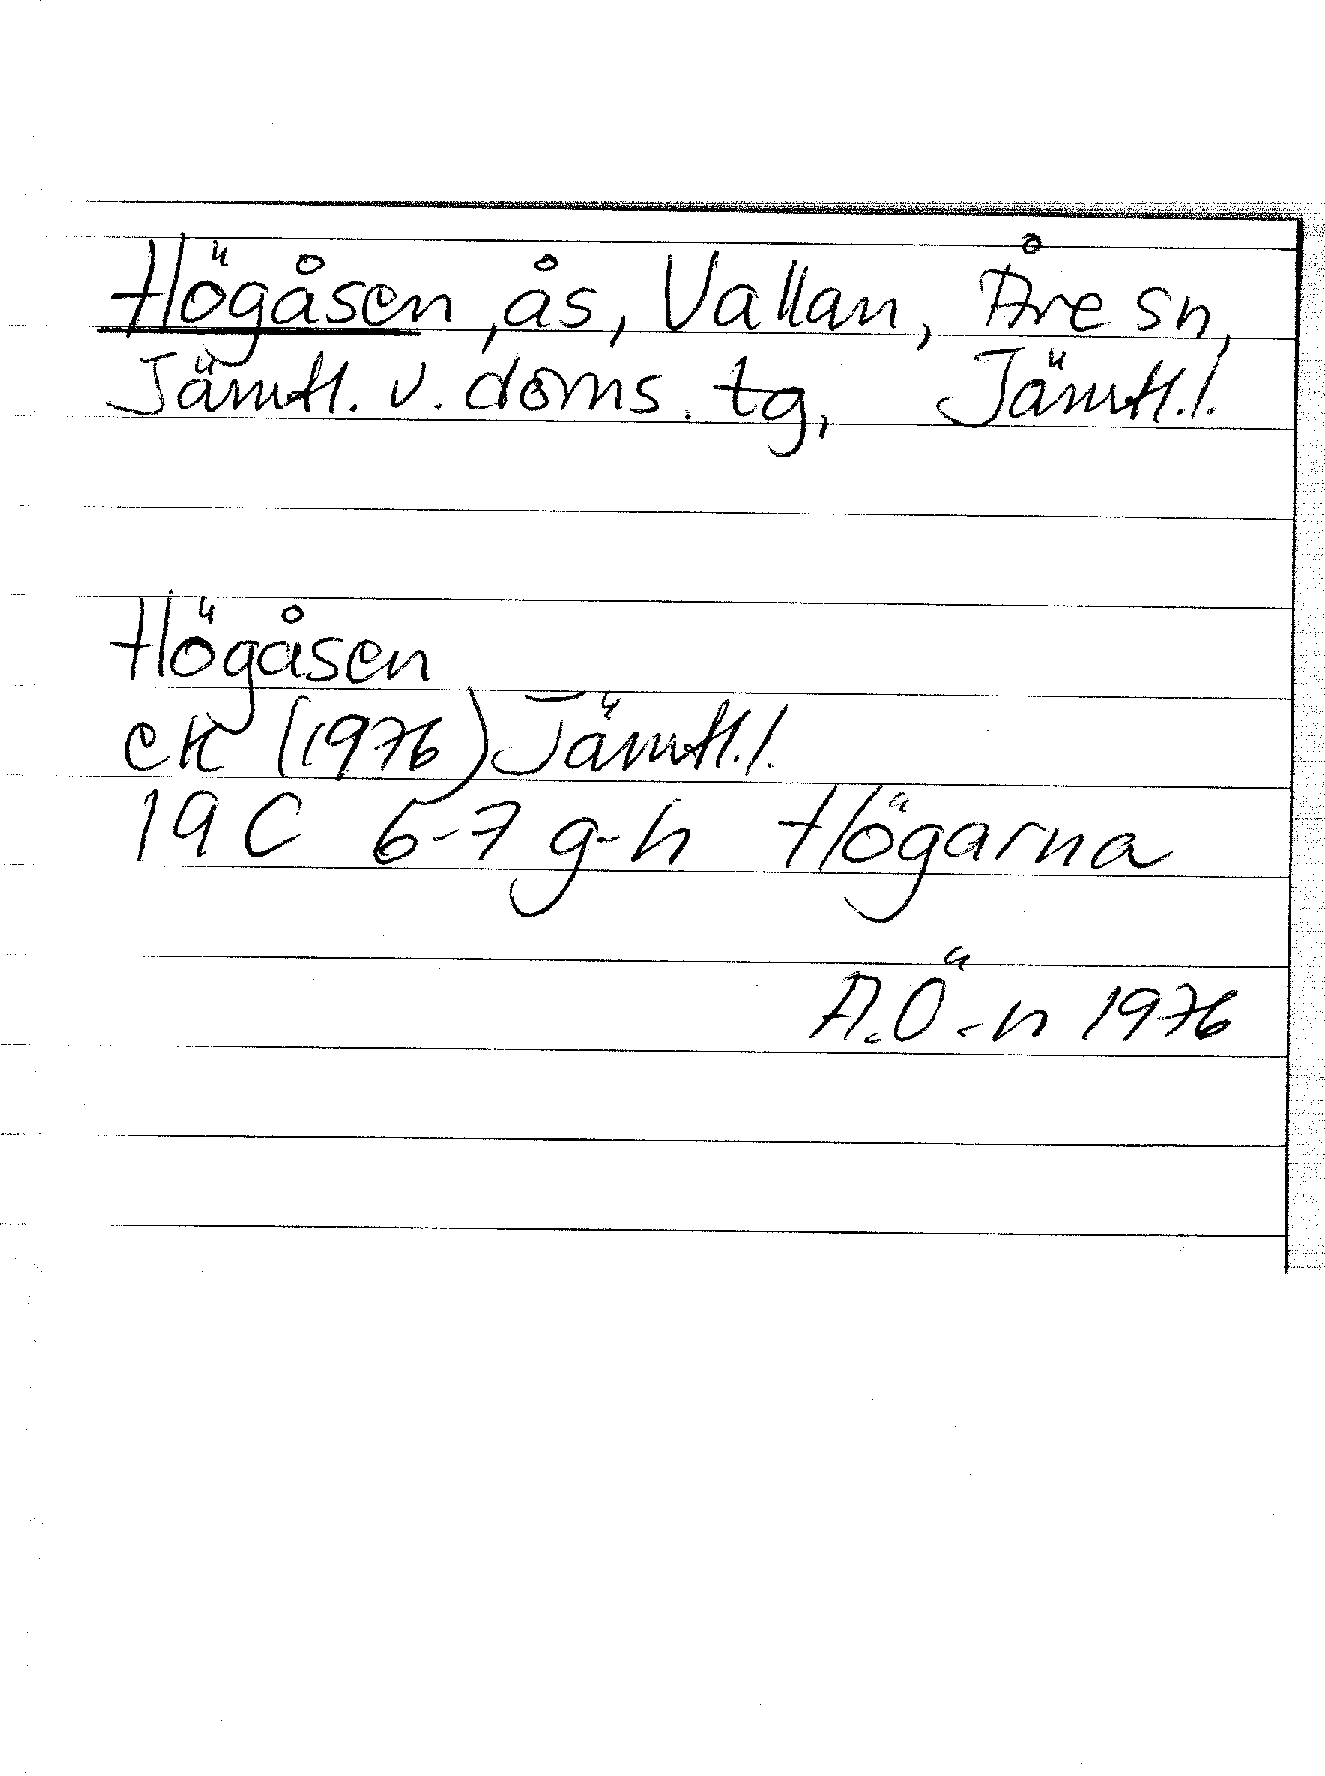 Högåsen, ås, Vallan, Åre sn,
Jämtl. v. doms. tg, Jämtl. l.
Högåsen
ek (1976) Jämtl. l.
19 C 6-7 g-h Högarna
A.Ö-n 1976